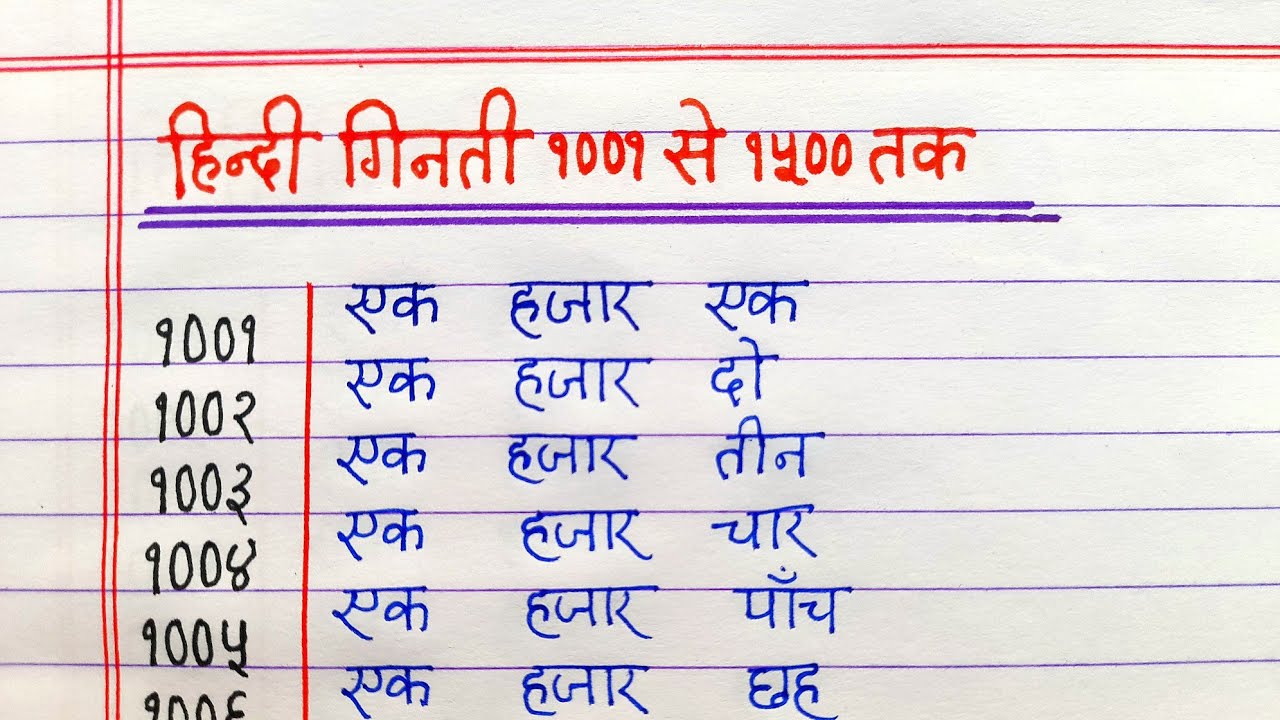 हिन्दी गिनती १००१ से १५०० तक
१००१ एक हजार एक
१००२ एक हजार दो
१००३ एक हजार तीन
१००४ एक हजार चार
१००५ एक हजार पाँच
१००६ एक हजार छह